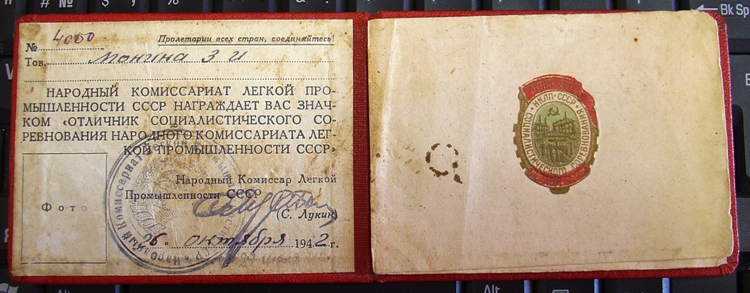 № 4000
Пролетарии всех стран, соединяйтесь!
Тов. Монина З И
НАРОДНЫЙ КОМИССАРИАТ ЛЕГКОЙ ПРО-
МЫШЛЕННОСТИ СССР НАГРАЖДАЕТ ВАС ЗНАЧ-
КОМ «ОТЛИЧНИК СОЦИАЛИСТИЧЕСКОГО СО-
РЕВНОВАНИЯ НАРОДНОГО КОМИССАРИАТА ЛЕГ-
КОЙ ПРОМЫШЛЕННОСТИ СССР»
Народный Комиссар Легкой
Промышленности СССР
(С. Лукин)
Фото
26 октября 1942 г.
Народный Комиссариат
НКЛП-СССР
СОЦИАЛИСТИЧЕСКОГО СОРЕВНОВАНИЯ
Bk Sp